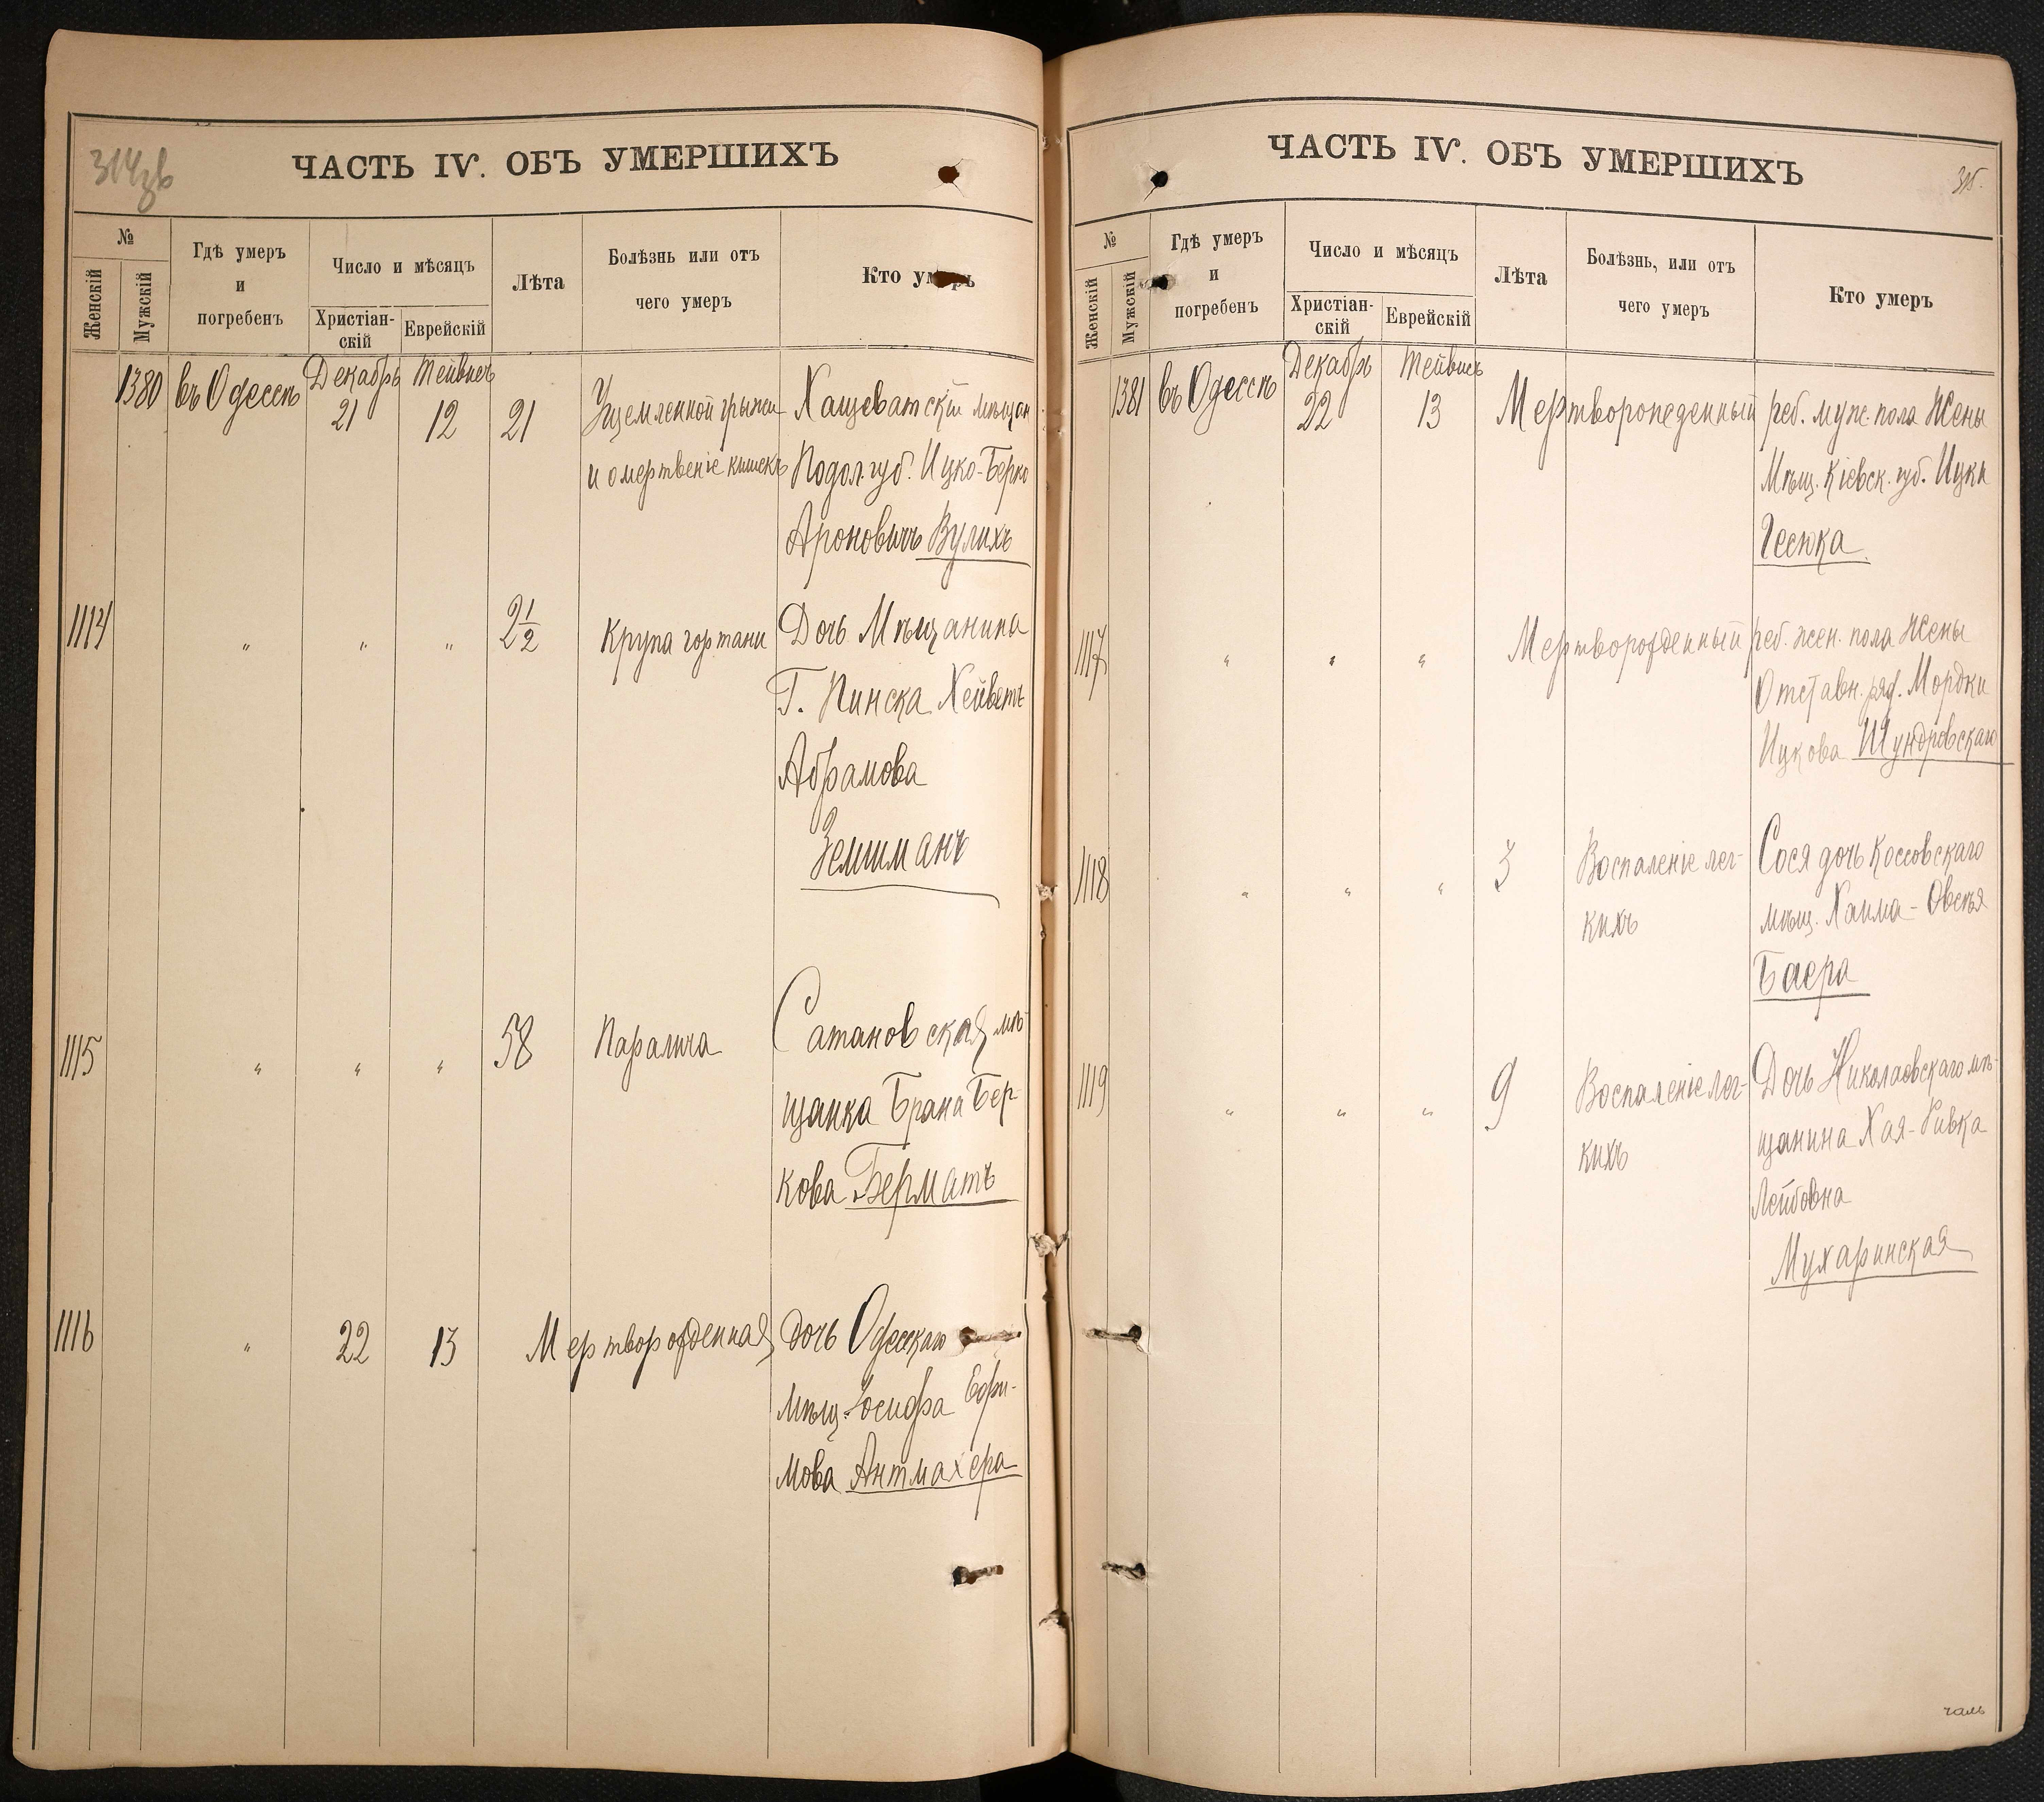 314зв
ЧАСТЬ IV. ОБЪ УМЕРШИХЪ
№
Женскій
Мужскій
Гдѣ умеръ
и
погребенъ
Число и мѣсяцъ
Христіан-
скій
Еврейскій
Лѣта
Болѣзнь или отъ
чего умеръ
Кто умеръ
1380 въ Одессѣ Декабрь 21 Тейвисъ 12 21
Ущемленной грыжи
и омертвеніе кишекъ
Хащеватскій мѣщан
Подол. губ. Ицко-Берко
Ароновичъ Вулихъ
1114 " " " 2 1/2 Крупа гортани
Дочь Мѣщанина
Г. Пинска Хейветъ
Абрамова
1115 " " " 58 Паралича
Сатановская мѣ-
щанка Брана Бер-
кова Берматъ
1116 " 22 13 Мертворожденная
дочь Одесскаго
Мѣщ. Іосифа Ефи-
мова Антмахера
ЧАСТЬ IV. ОБЪ УМЕРШИХЪ
315.
№
Женскій
Мужскій
Гдѣ умеръ
и
погребенъ
Число и мѣсяцъ
Христіан-
скій
Еврейскій
Лѣта
Болѣзнь, или отъ
чего умеръ
Кто умеръ
1381 въ Одессѣ Декабрь 22 Тейвисъ 13
Мертворожденный реб. муж. пола Жены
Мѣщ. Кіевск. губ. Ицки
1117 " " " Мертворожденный реб. жен. пола Жены
Отставн. ряд. Мордки
Ицкова Шундровскаго
1118 " " " 3 Воспаленіе лег-
кихъ
Сося дочь Коссовскаго
мѣщ. Хаима-Овсѣя
Баера
1119 " " " 9 Воспаленіе лег-
кихъ
Дочь Николаевскаго мѣ-
щанина Хая-Ривка
Лейбовна
Мухаринская